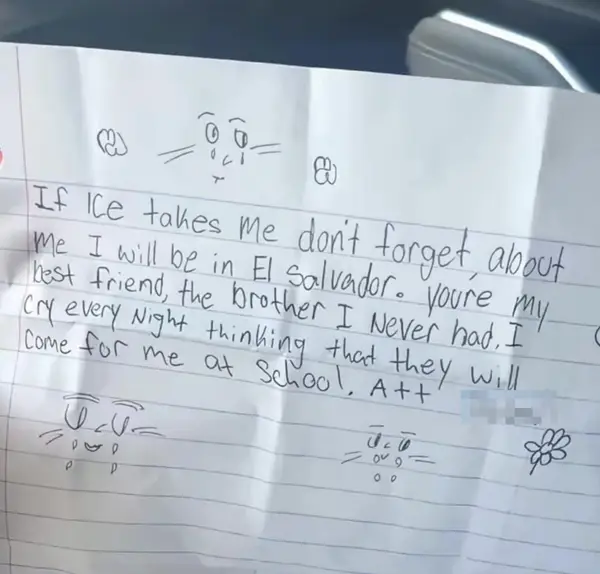 If Ice takes me don't forget about
me I will be in El Salvador. youre my
best friend, the brother I Never had. I
cry every Night thinking that they will
Come for me at School. Att